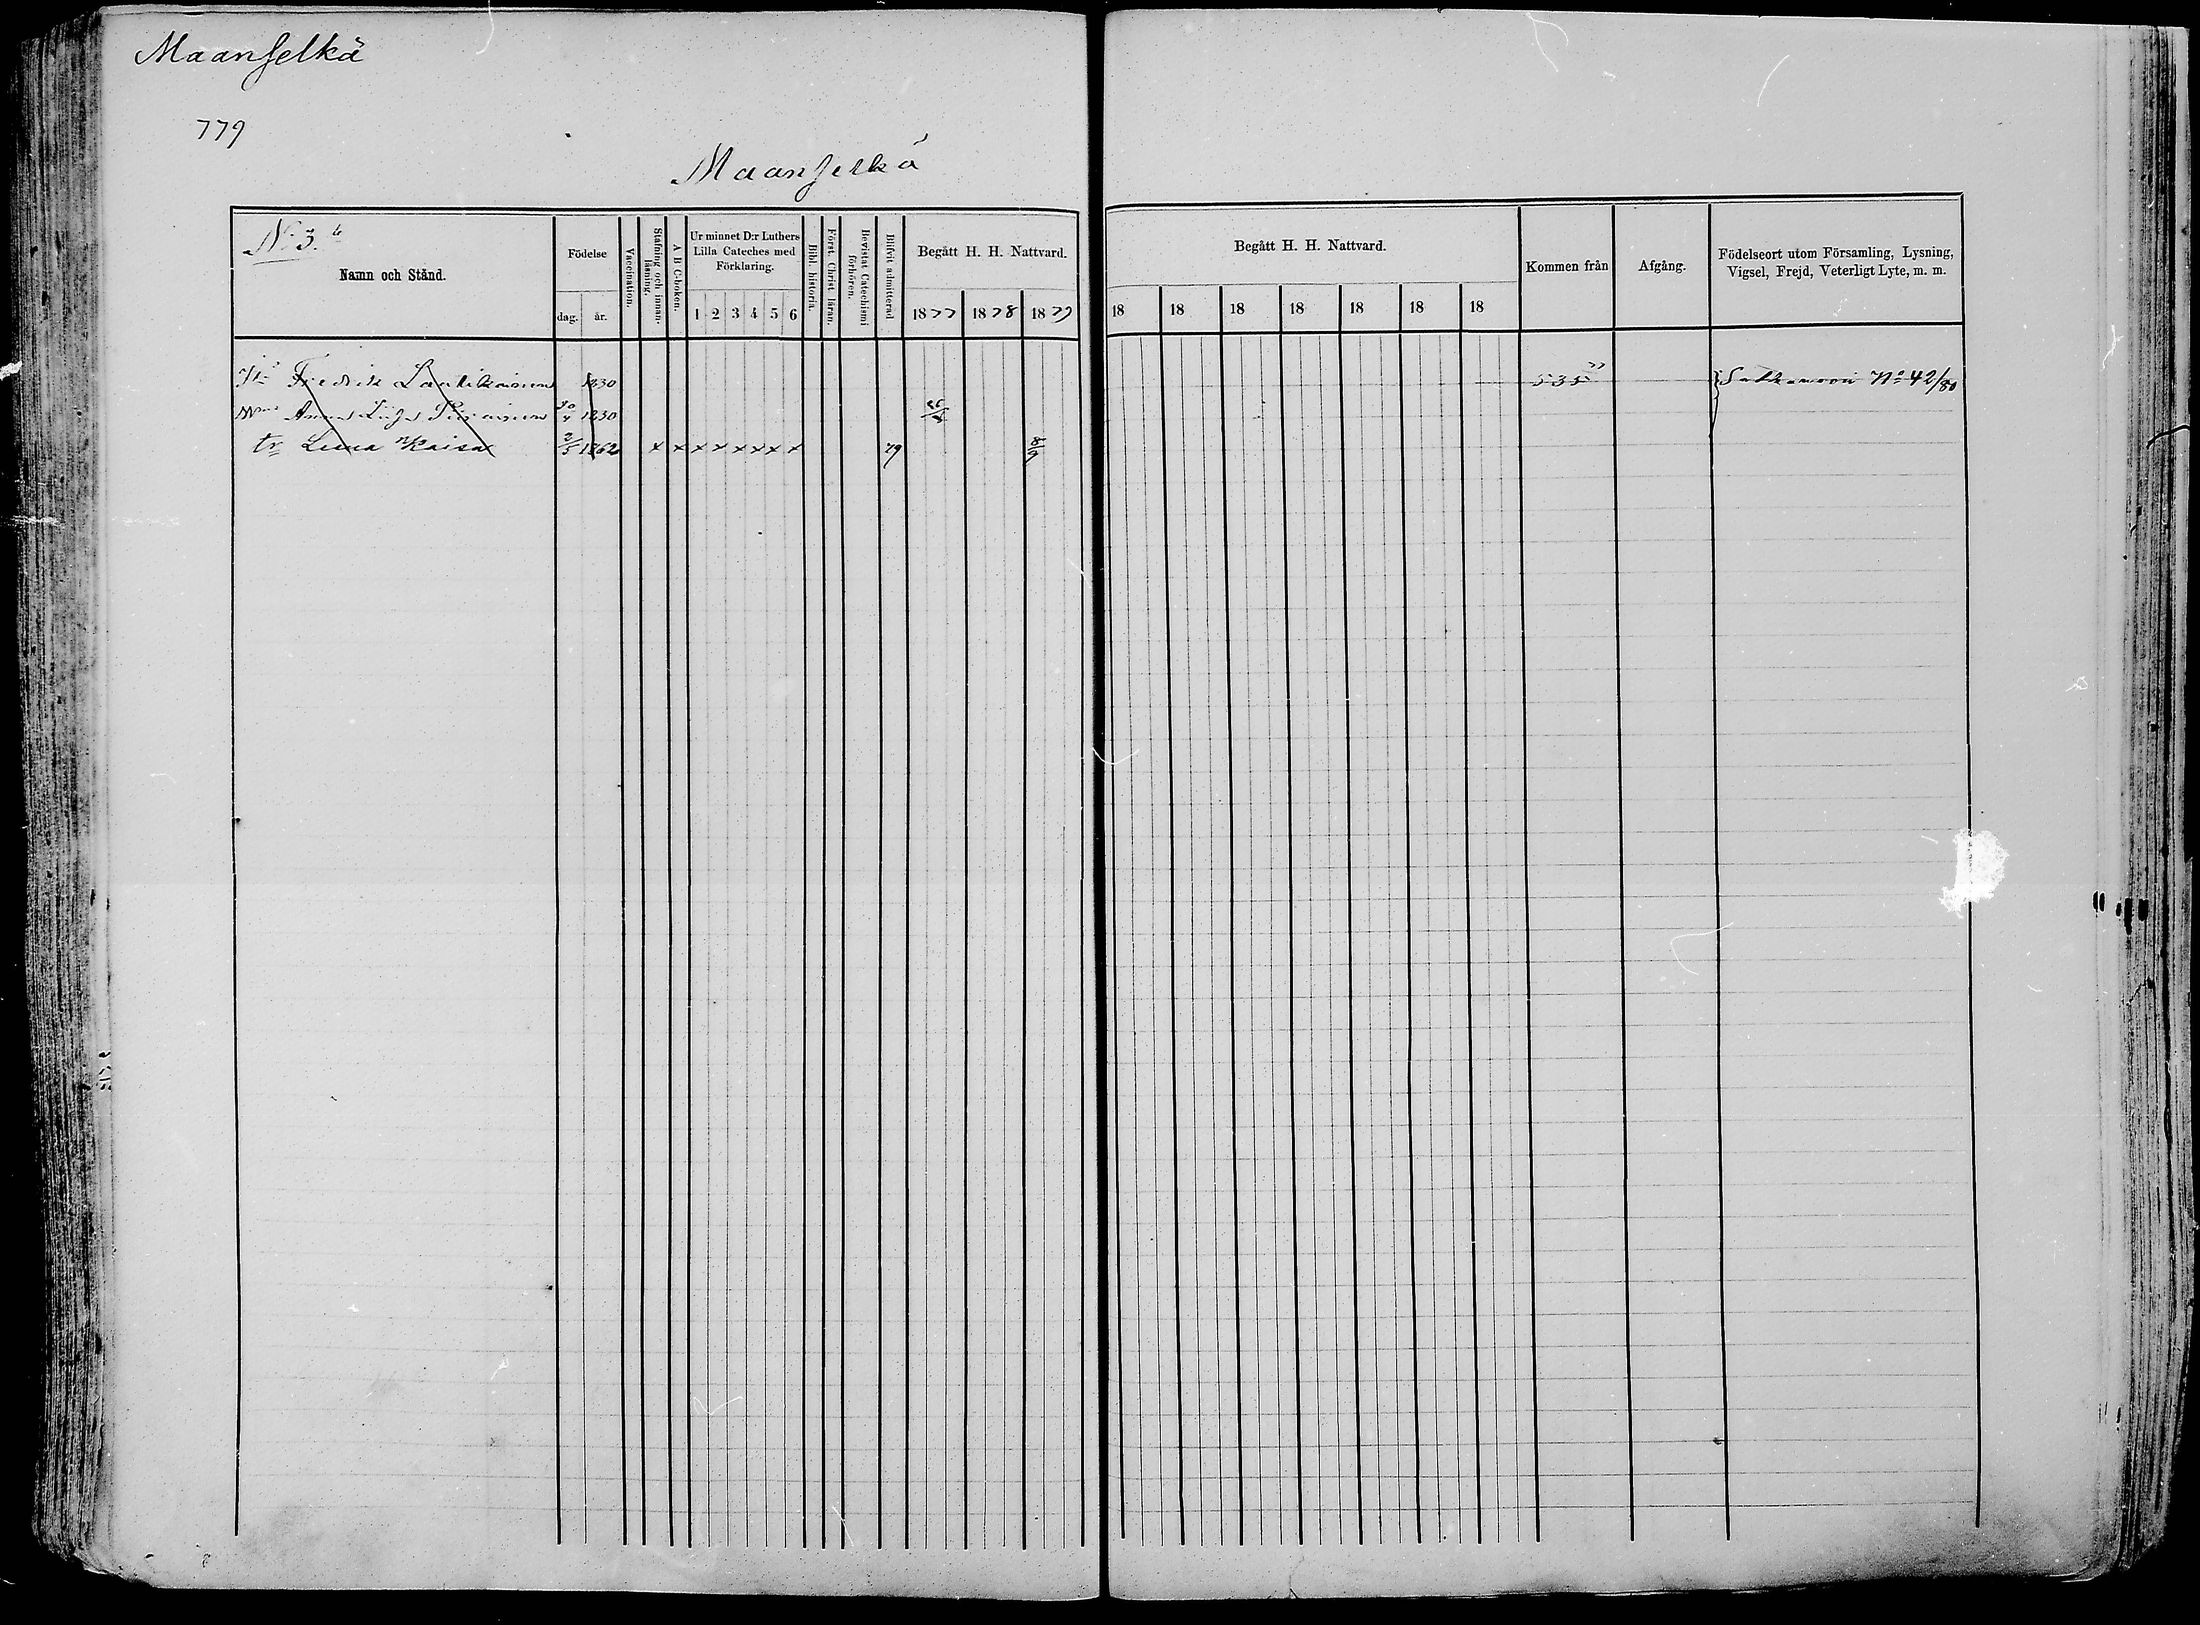 Maanselkä
779
Maanselkä
No 3. b
Namn och Stånd.
Födelse
dag. år.
Vaccination.
Stafning och innan-läsning.
A B C-boken.
Ur minnet D:r Luthers Lilla Cateches med Förklaring.
1 2 3 4 5 6
Bibl. historia.
Först. Christ läran.
Bevistat Catechismi förhören.
Blifvit admitterad
Begått H. H. Nattvard.
1877 1878 1879
Begått H. H. Nattvard.
18 18 18 18 18 18 18
Kommen från
Afgång.
Födelseort utom Församling, Lysning, Vigsel, Frejd, Veterligt Lyte, m. m.
Fredrik 1830 535 77 No 42/80
Anna 1830
tr Leena Kaisa 2/5 1862 x x x x x x x x 79 8/9